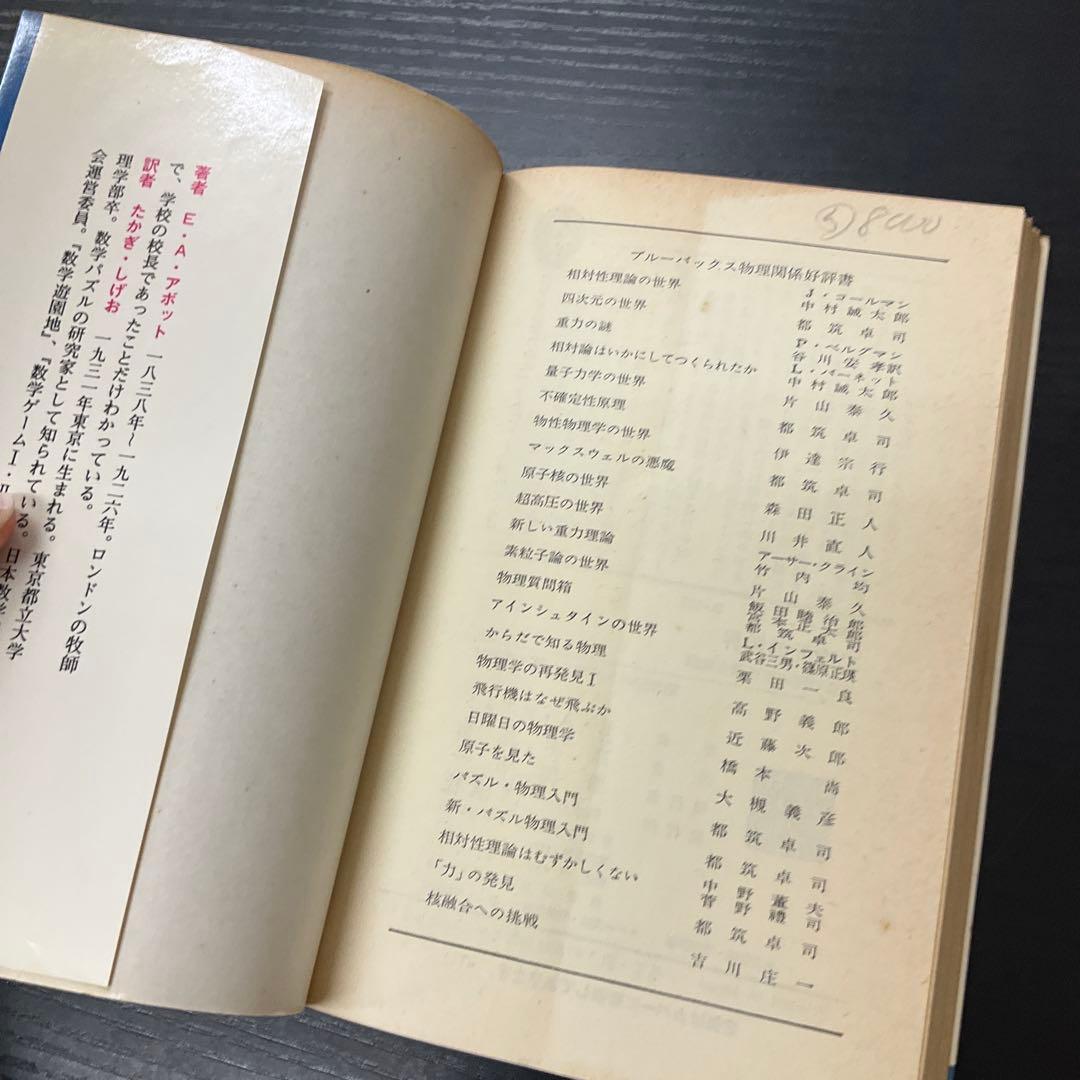 著者 E・A・アボット 一八三八年〜一九二六年。ロンドンの牧師
で、学校の校長であったことだけわかっている。
訳者 たかぎ・しげお 一九三一年東京に生まれる。東京都立大学
理学部卒。数学パズルの研究家として知られている。日本数学
会運営委員。『数学遊園地』、『数学ゲームⅠ・Ⅱ
ブルーバックス物理関係好評書
相対性理論の世界 J・コールマン
中村誠太郎
四次元の世界 都筑卓司
重力の謎 P・ベルグマン
谷川安孝訳
相対論はいかにしてつくられたか L・バーネット
中村誠太郎
量子力学の世界 片山泰久
不確定性原理 都筑卓司
物性物理学の世界 伊達宗行
マックスウェルの悪魔 都筑卓司
原子核の世界 森田正人
超高圧の世界 川井直人
新しい重力理論 アーサー・クライン
竹内均
素粒子論の世界 片山泰久
物理質問箱 飯田睦治郎
宮本正太郎
都筑卓司
アインシュタインの世界 L・インフェルト
武谷三男・篠原正瑛
からだで知る物理 栗田一良
物理学の再発見Ⅰ 高野義郎
飛行機はなぜ飛ぶか 近藤次郎
日曜日の物理学 橋本尚
原子を見た 大槻義彦
パズル・物理入門 都筑卓司
新・パズル物理入門 都筑卓司
相対性理論はむずかしくない 中野董夫
菅野禮司
「力」の発見 都筑卓司
核融合への挑戦 吉川庄一